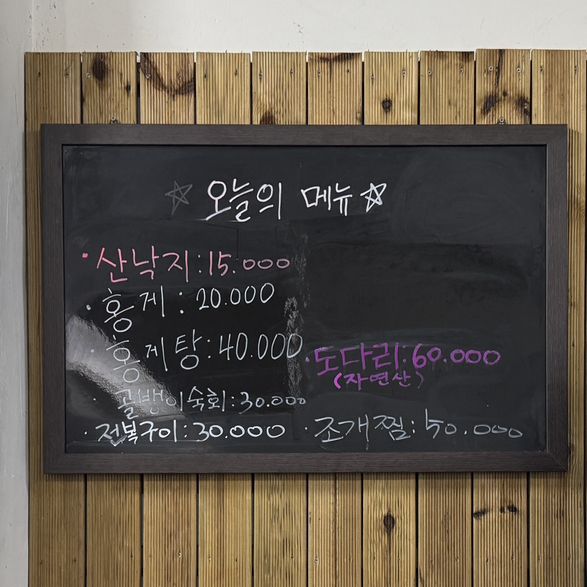 ☆ 오늘의 메뉴 ☆
· 산낙지 : 15.000
· 홍게 : 20.000
· 홍게탕 : 40.000
· 골뱅이숙회 : 30.000
· 전복구이 : 30.000
· 도다리 : 60.000
(자연산)
· 조개찜 : 50.000